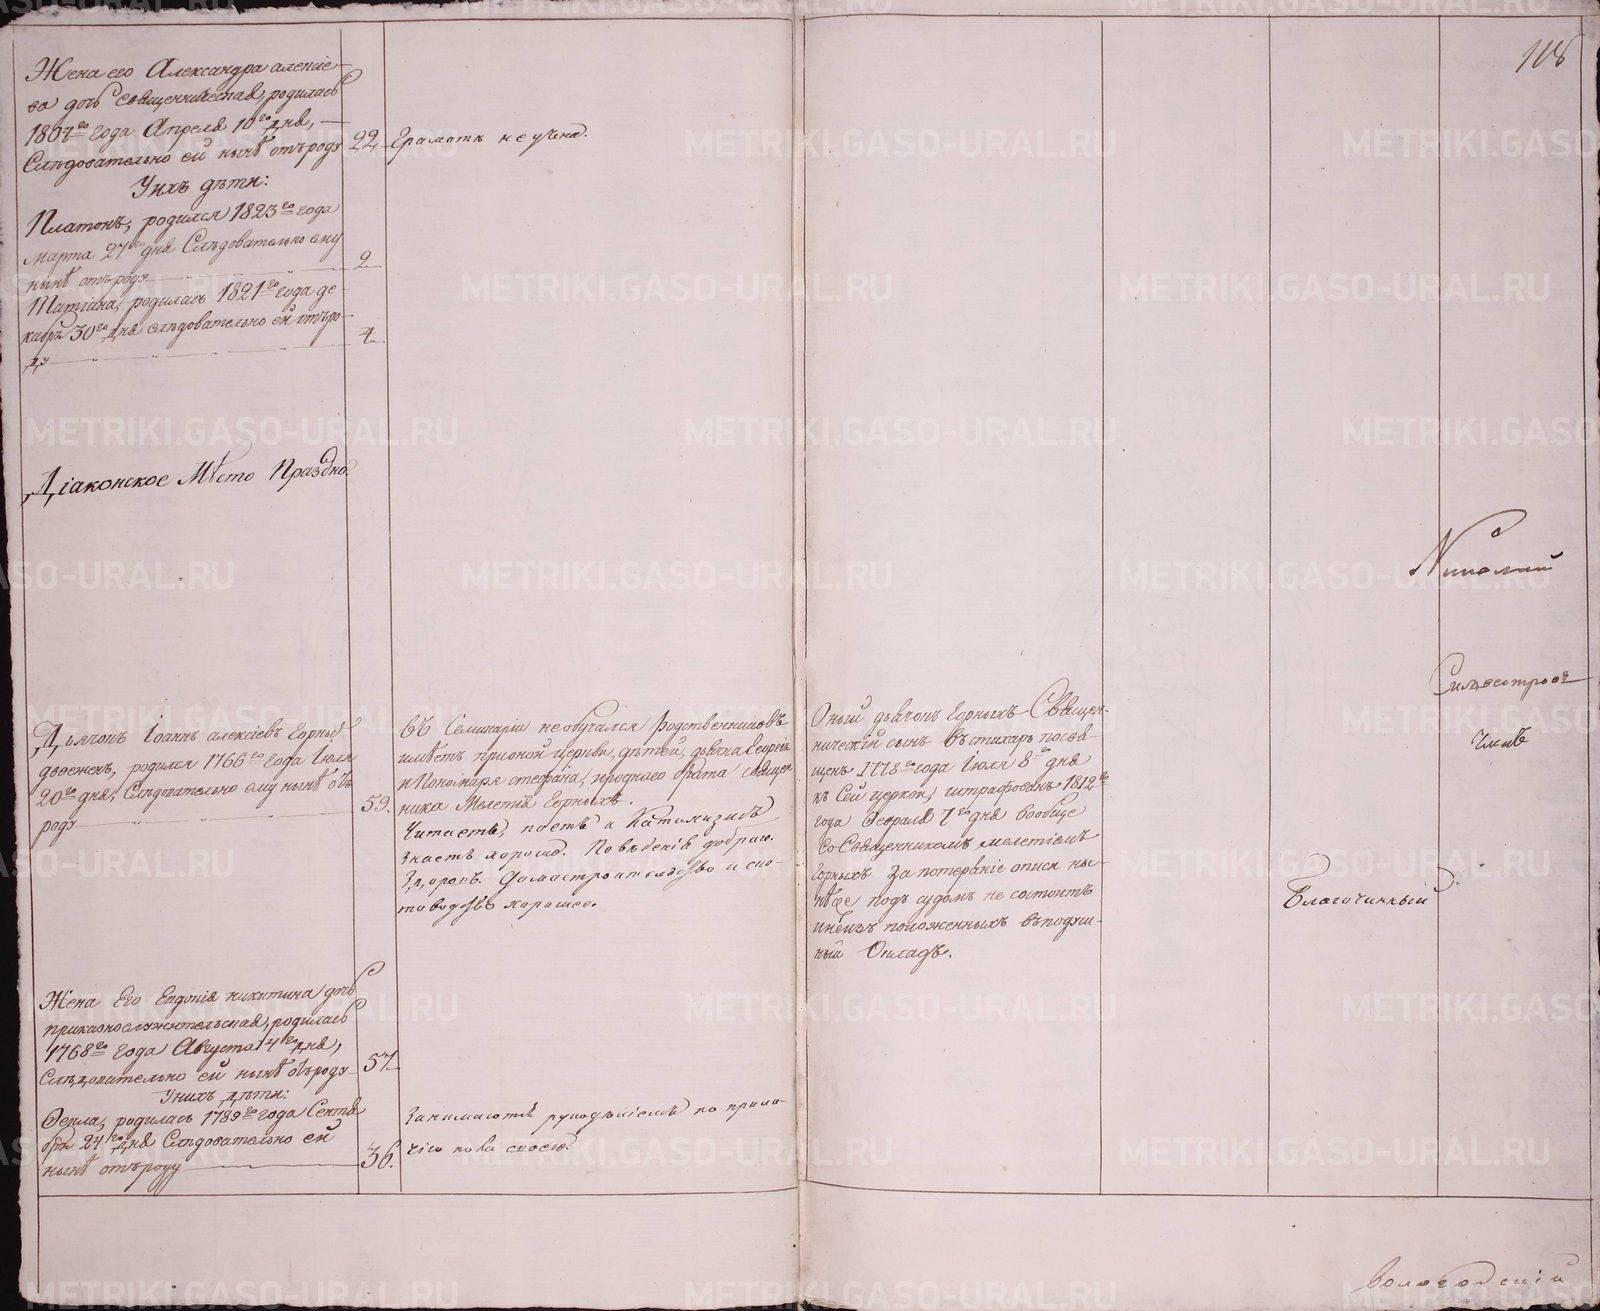 118
Жена его Александра алексіе-
ва дочь священническая, родилась
1807го года Апреля 10го дня, —
Слѣдовательно ей нынѣ отъ роду 22 Грамотѣ не учена.
У нихъ дѣти:
Платонъ, родился 1823го года
марта 27го дня Слѣдовательно ему
нынѣ отъ роду 2
Татіана, родилась 1821го года де-
кабря 30го дня слѣдовательно ей отъ ро-
ду 4
Діаконское Мѣсто Праздно.
Дьячокъ Іоаннъ алексіевъ Горныхъ
родился 1766го года Іюля
20го дня, Слѣдовательно ему нынѣ отъ
роду 59.
въ Семинаріи не обучался Родственниковъ
имѣетъ при оной церкви, дѣтей, дьячка Георгія
и Пономаря стефана, и роднаго брата священ
ника Мелетія Горныхъ.
Читаетъ, поетъ и Катихизисъ
знаетъ хорошо. Поведенія добраго.
Здоровъ. Домостроительство и ско-
товодство хорошее.
Оный дьячокъ Горныхъ Священ-
ническій сынъ въ стихарь посвя-
щенъ 1778го года Іюля 8го дня
къ Сей церкви, штрафованъ 1812го
года Февраля 7го дня вообще
со Священникомъ мелетіемъ
Горныхъ За потеряніе описи ны-
нѣ же подъ судомъ не состоитъ
и не изъ положенныхъ въ подуш-
ный Окладъ.
Жена Его Евдокія никитина дочь
приказнослужительская, родилась
1768го года Августа 4го дня,
Слѣдовательно ей нынѣ отъ роду 57.
У нихъ дѣти:
Фекла, родилась 1789го года Сентя
бря 24го дня Слѣдовательно ей
нынѣ отъ роду 36.
Занимаются рукодѣліемъ по прили-
чію пола своего.
Николай
Силвестровъ
Благочинный
Вологодскій